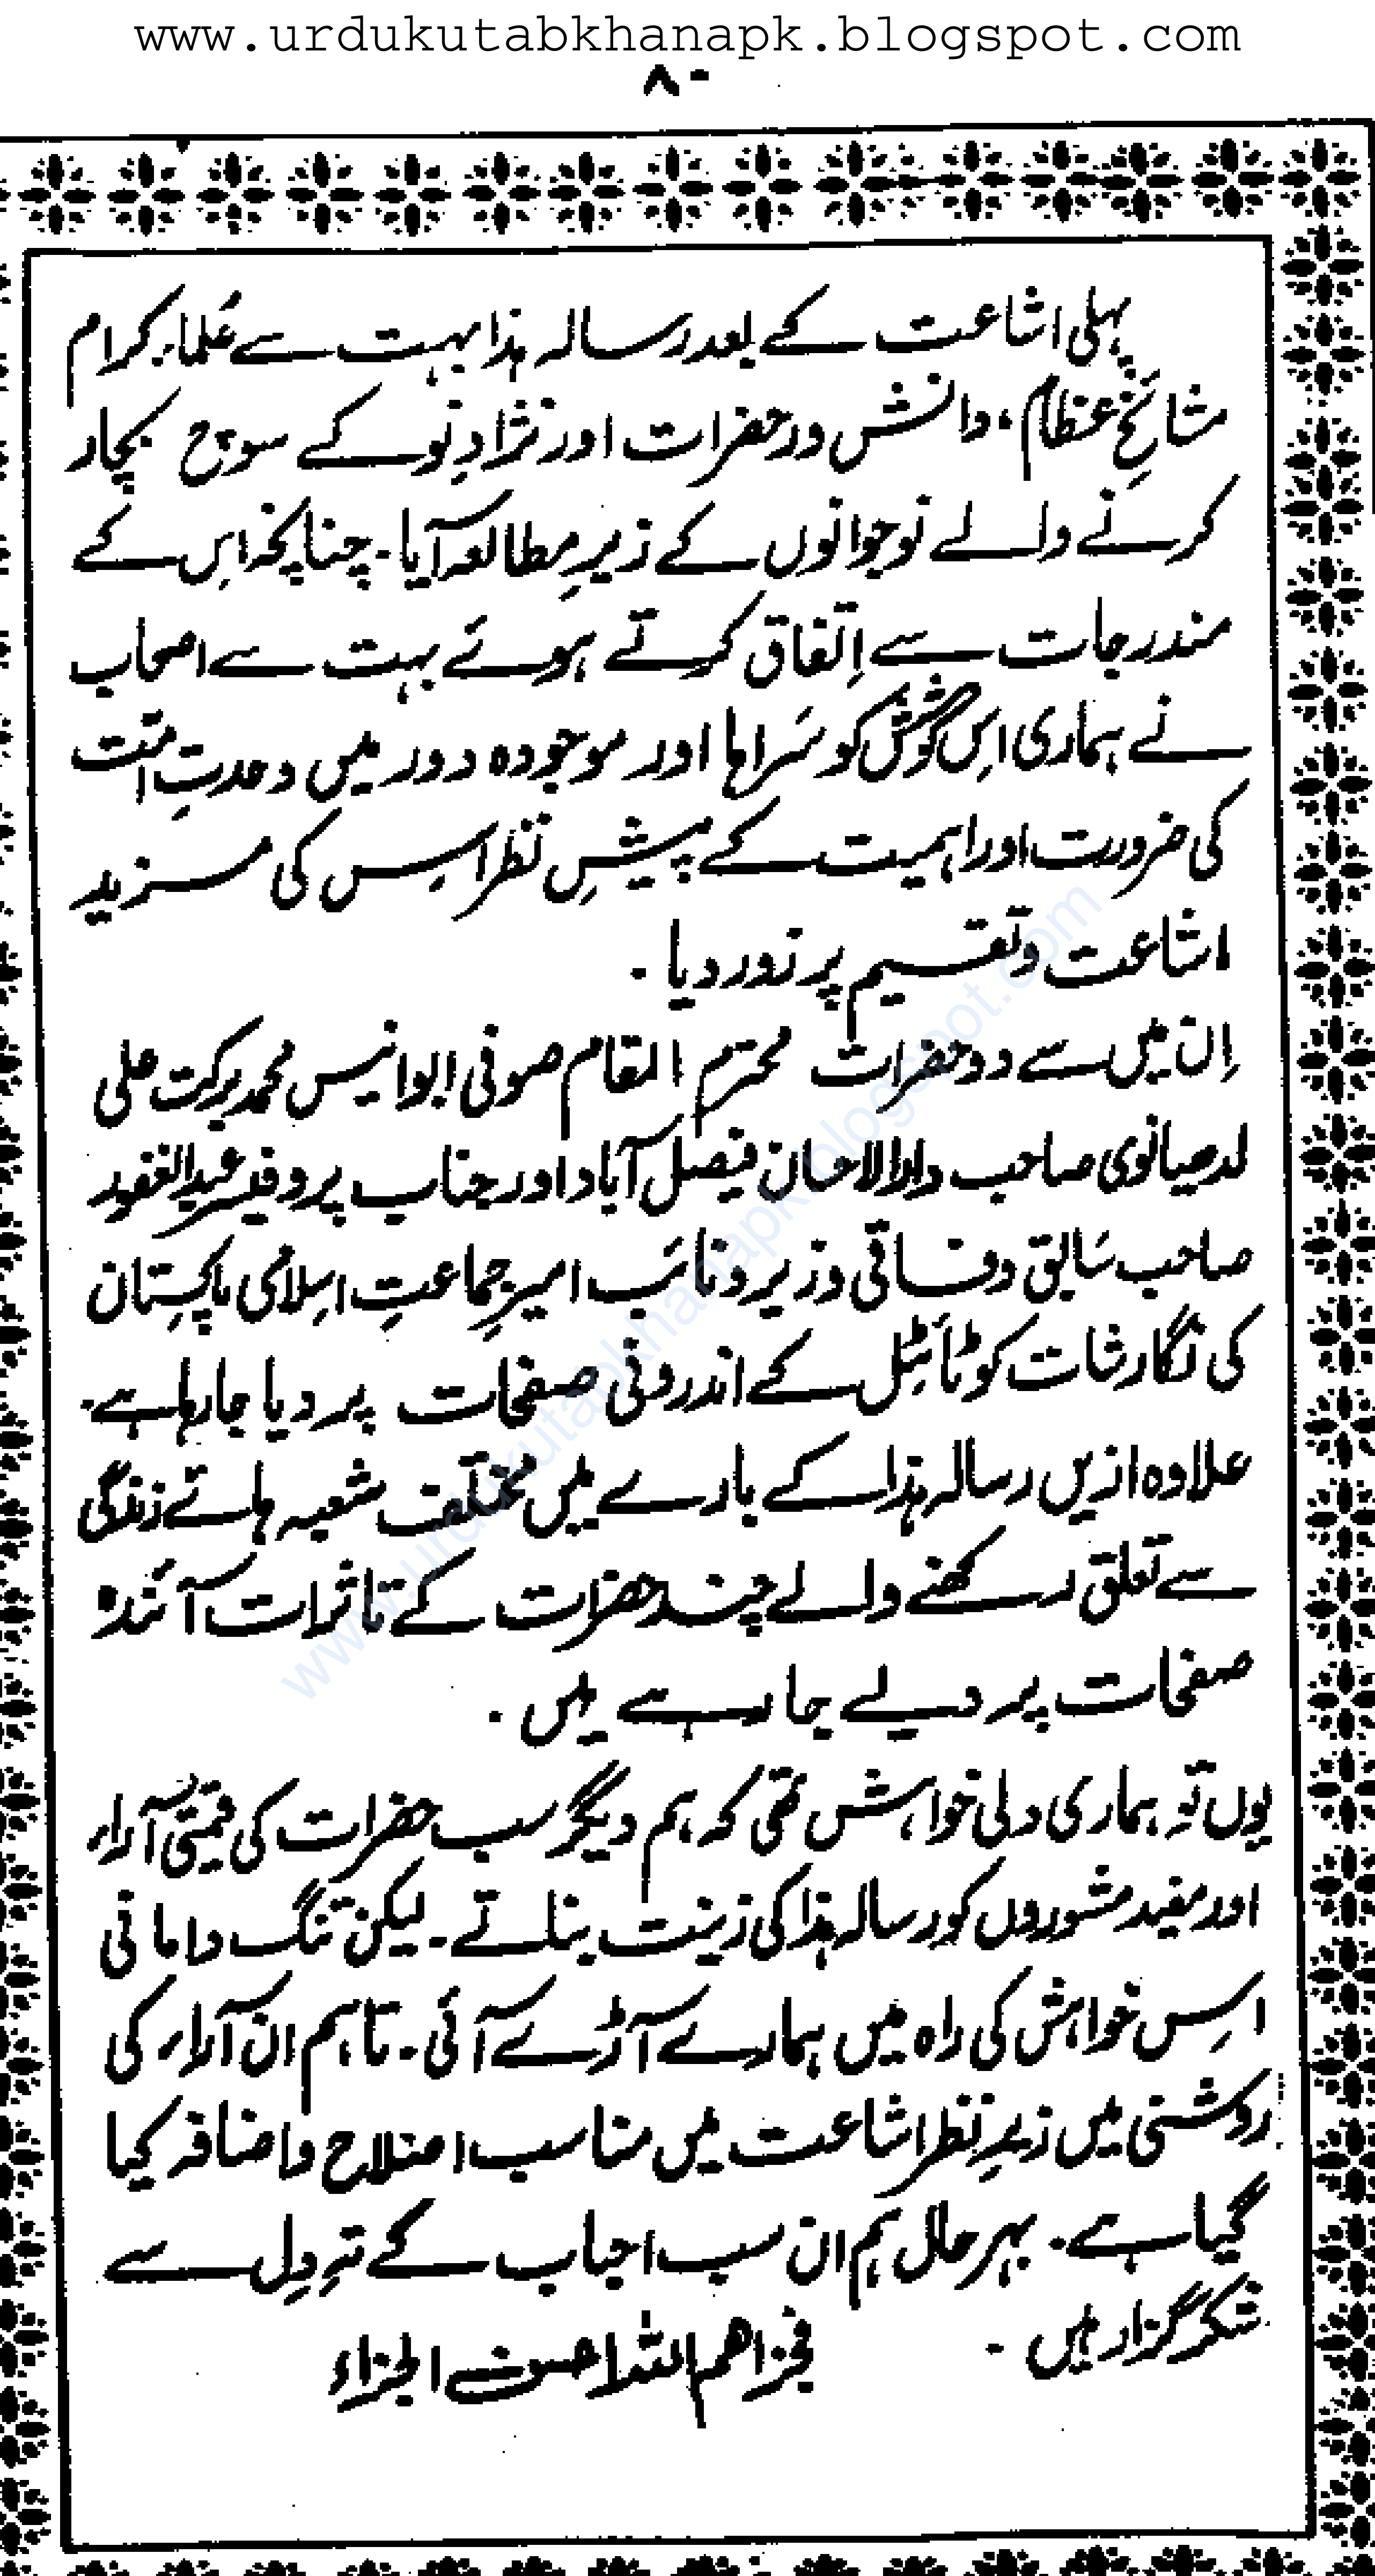 www.urdukutabkhanapk.blogspot.com
۸۰
پہلی اشاعت کے بعد رسالہ ہذا بہت سے عُلماء کرام
مشائخِ عظام، دانش ور حضرات اور نژادِ نو کے سوچ بچار
کرنے والے نوجوانوں کے زیرِ مطالعہ آیا۔ چنانچہ اِس کے
مندرجات سے اِتفاق کرتے ہوئے بہت سے اصحاب
نے ہماری اِس کوشش کو سَراہا اور موجودہ دور میں وحدتِ امّت
کی ضرورت اور اہمیت کے پیشِ نظر اِس کی مزید
اشاعت و تقسیم پر زور دیا۔
اِن میں سے دو حضرات محترم المقام صوفی ابو انیس محمد برکت علی
لدھیانوی صاحب دارالاحسان فیصل آباد اور جناب پروفیسر عبدالغفور
صاحب سَابق وفاقی وزیر و نائَب امیرِ جماعتِ اسِلامی پاکِستان
کی نگارشات کو ٹائَیٹل کے اندرونی صفحات پر دیا جا رہا ہے۔
علاوہ ازیں رسالہ ہذا کے بارے میں مختلف شعبہ ہائے زندگی
سے تعلق رکھنے والے چند حضرات کے تاثرات آئندہ
صفحات پر دیے جا رہے ہیں۔
یوں تو ہماری دلی خواہش تھی کہ ہم دیگر سب حضرات کی قیمتی آراء
اور مفید مشوروں کو رسالہ ہذا کی زینت بناتے۔ لیکن تنگ دامانی
اِس خواہش کی راہ میں ہمارے آڑے آئی۔ تاہم ان آراء کی
روشنی میں زیرِ نظر اشاعت میں مناسب اصلاح و اضافہ کیا
گیا ہے۔ بہر حال ہم ان سب احباب کے تہِ دِل سے
شکر گزار ہیں۔ فجزاھم اللہ احسن الجزاء
www.urdukutabkhanapk.blogspot.com